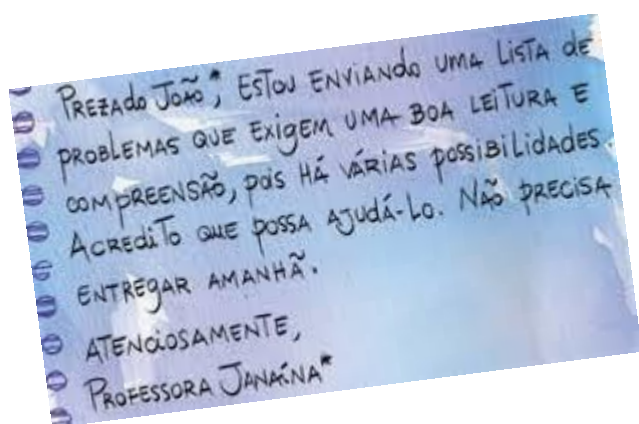 Prezado João*, Estou enviando uma lista de
problemas que exigem uma boa leitura e
compreensão, pois há várias possibilidades.
Acredito que possa ajudá-lo. Não precisa
entregar amanhã.
Atenciosamente,
Professora Janaína*